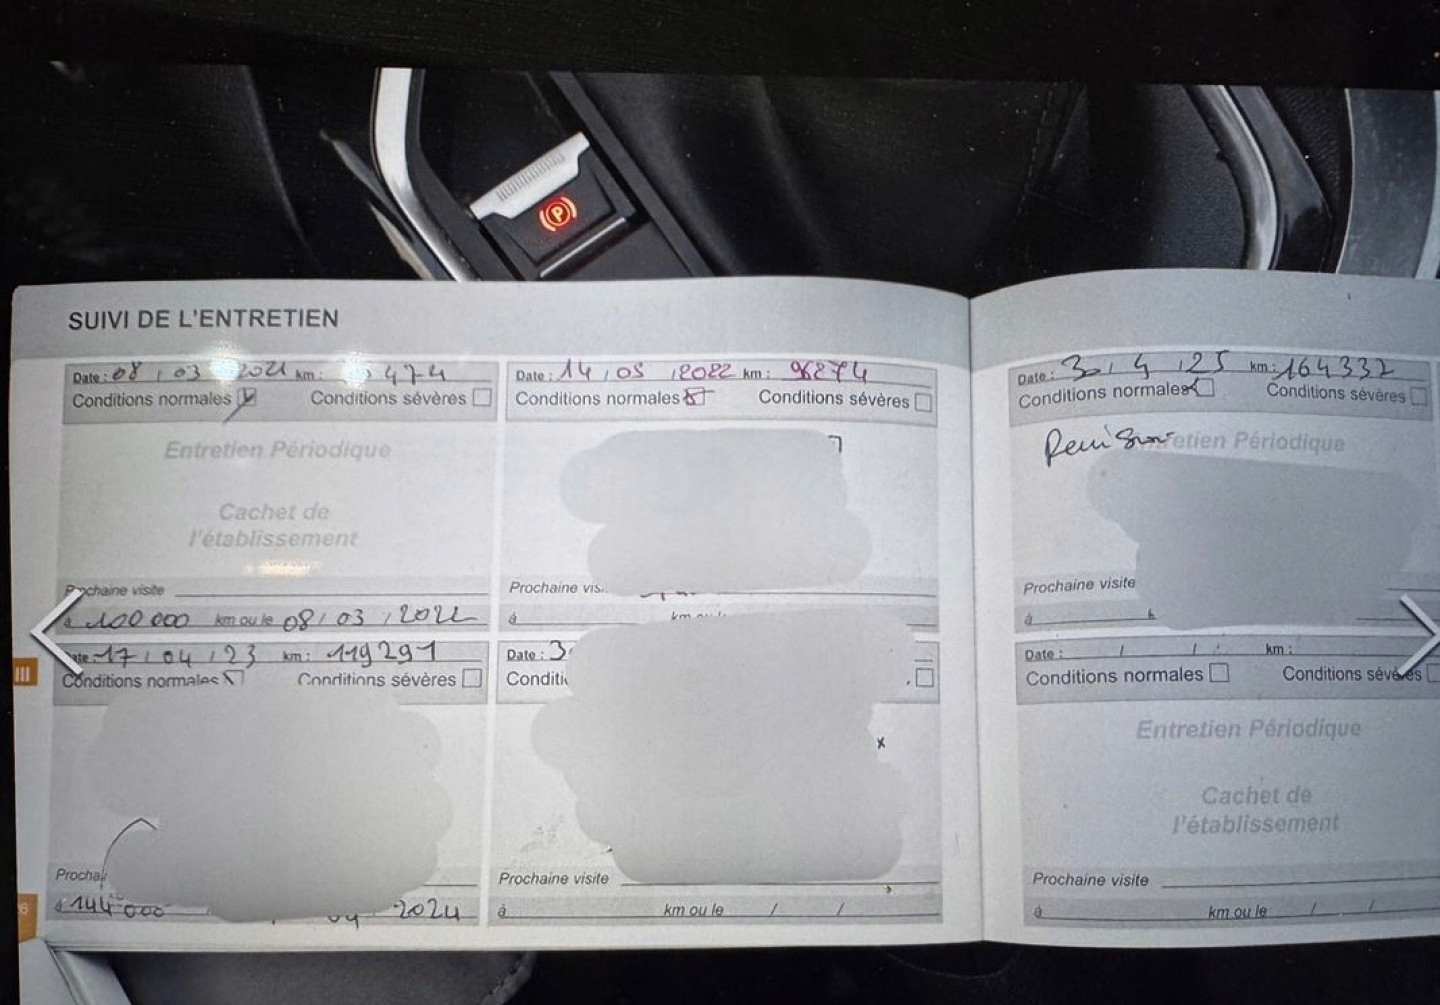 SUIVI DE L'ENTRETIEN
Date : 08 / 03 2021 km : 474
Conditions normales Conditions sévères
Entretien Périodique
Cachet de
l'établissement
Prochaine visite
à 100 000 km ou le 08 / 03 / 2022
Date : 17 / 04 / 23 km : 119291
Conditions normales Conditions sévères
Procha
à 144 000 04 2024
Date : 14 / 05 / 2022 km : 96274
Conditions normales Conditions sévères
Prochaine vis
à km ou
Date : 3
Conditi
x
Prochaine visite
à km ou le / /
Date : 30 / 4 / 25 km : 164332
Conditions normales Conditions sévères
Revision retien Périodique
Prochaine visite
à k
Date : / / km :
Conditions normales Conditions sévères
Entretien Périodique
Cachet de
l'établissement
Prochaine visite
à km ou le / /
III
6
P